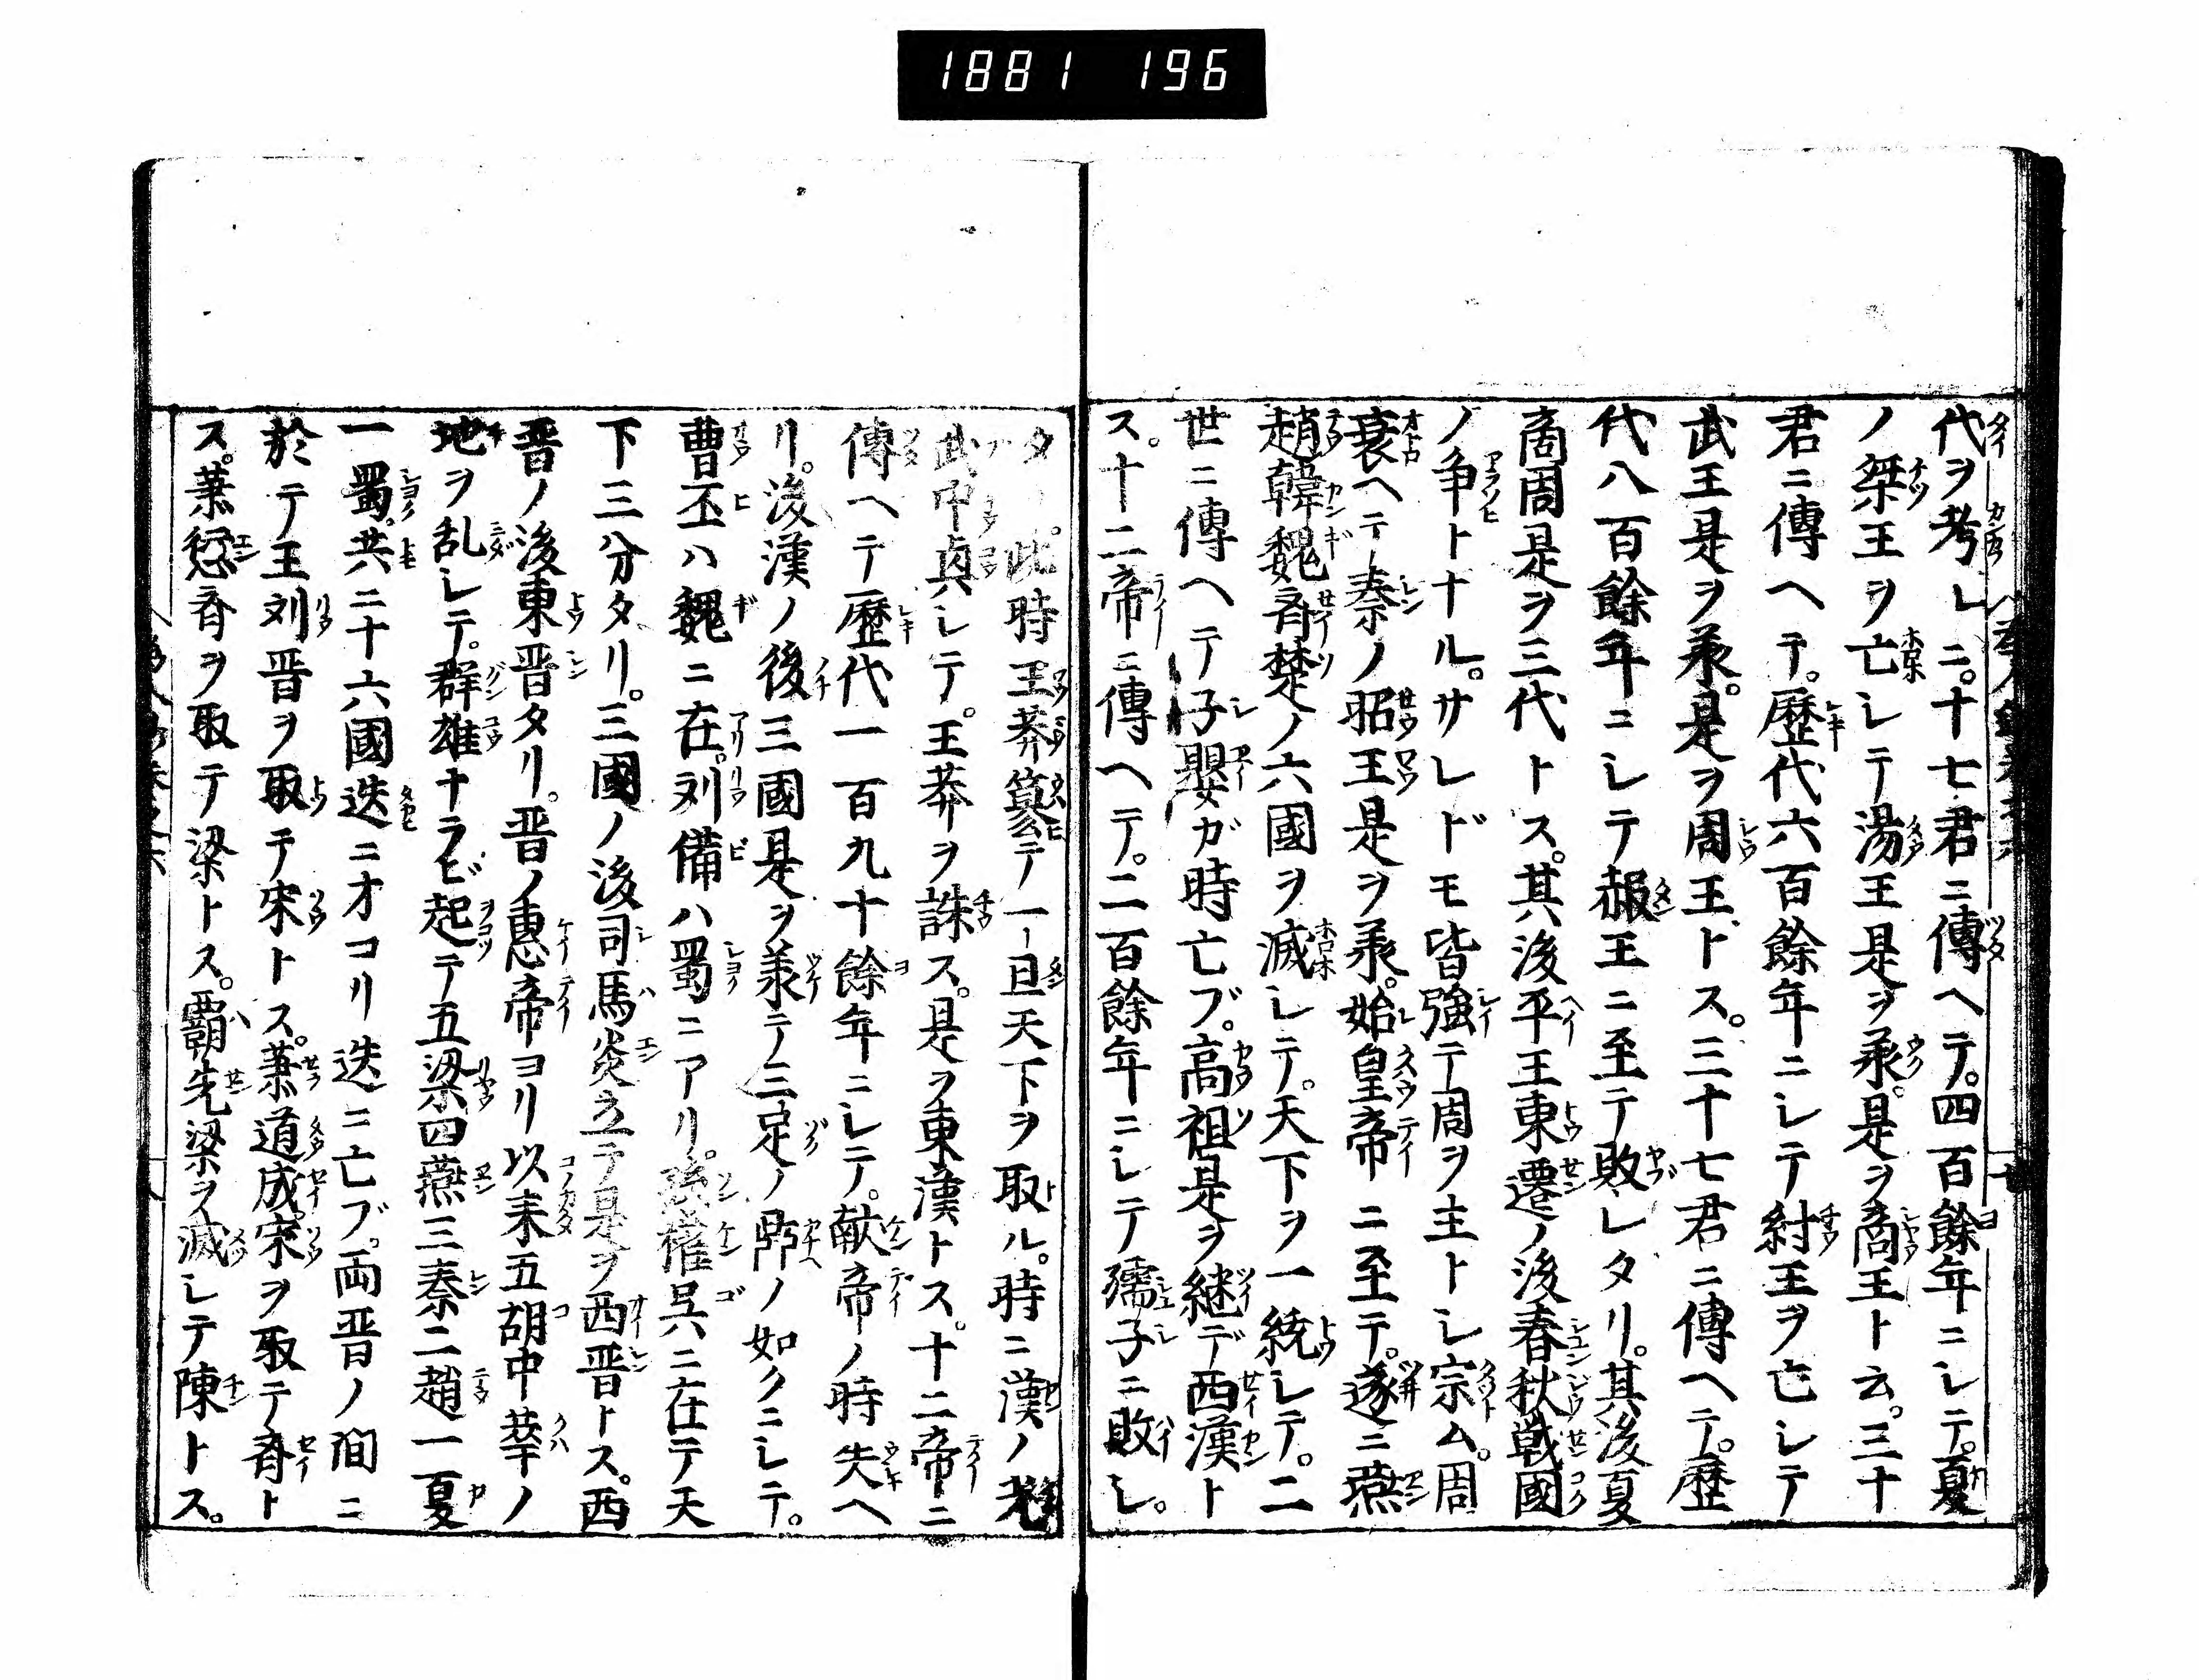 1881 196
代ヲ考レニ。十七君ニ傳ヘテ。四百餘年ニシテ。夏
ノ桀王ヲ亡シテ湯王是ヲ承。是ヲ商王ト云。三十
君ニ傳ヘテ。歷代六百餘年ニシテ紂王ヲ亡シテ
武王是ヲ承。是ヲ周王トス。三十七君ニ傳ヘテ。歷
代八百餘年ニシテ赧王ニ至テ敗レタリ。其後夏
商周是ヲ三代トス。其後平王東遷ノ後春秋戦國
ノ爭トナル。サレドモ皆強テ周ヲ主トシ宗ム。周
衰ヘテ秦ノ昭王是ヲ承。始皇帝ニ至テ。遂ニ燕
趙韓魏斉楚ノ六國ヲ滅シテ。天下ヲ一統シテ。二
世ニ傳ヘテ子嬰ガ時亡ブ。高祖是ヲ継デ西漢ト
ス。十二帝ニ傳ヘテ。二百餘年ニシテ孺子ニ敗レ。
タリ。此時王莽簒テ一旦天下ヲ取ル。時ニ漢ノ光
武中興シテ。王莽ヲ誅ス。是ヲ東漢トス。十二帝ニ
傳ヘテ歷代一百九十餘年ニシテ。献帝ノ時失ヘ
リ。後漢ノ後三國是ヲ承テ三足ノ鼎ノ如クニシテ。
曹丕ハ魏ニ在。刘備ハ蜀ニアリ。孫權呉ニ在テ天
下三分タリ。三國ノ後司馬炎立テ是ヲ西晋トス。西
晋ノ後東晋タリ。晋ノ惠帝ヨリ以来五胡中華ノ
地ヲ乱シテ。群雄ナラビ起テ五梁四燕三秦二趙一夏
一蜀。共ニ十六國迭ニオコリ迭ニ亡ブ。両晋ノ間ニ
於テ王刘晋ヲ取テ宋トス。蕭道成宋ヲ取テ斉ト
ス。蕭衍斉ヲ取テ梁トス。覇先梁ヲ滅シテ陳トス。